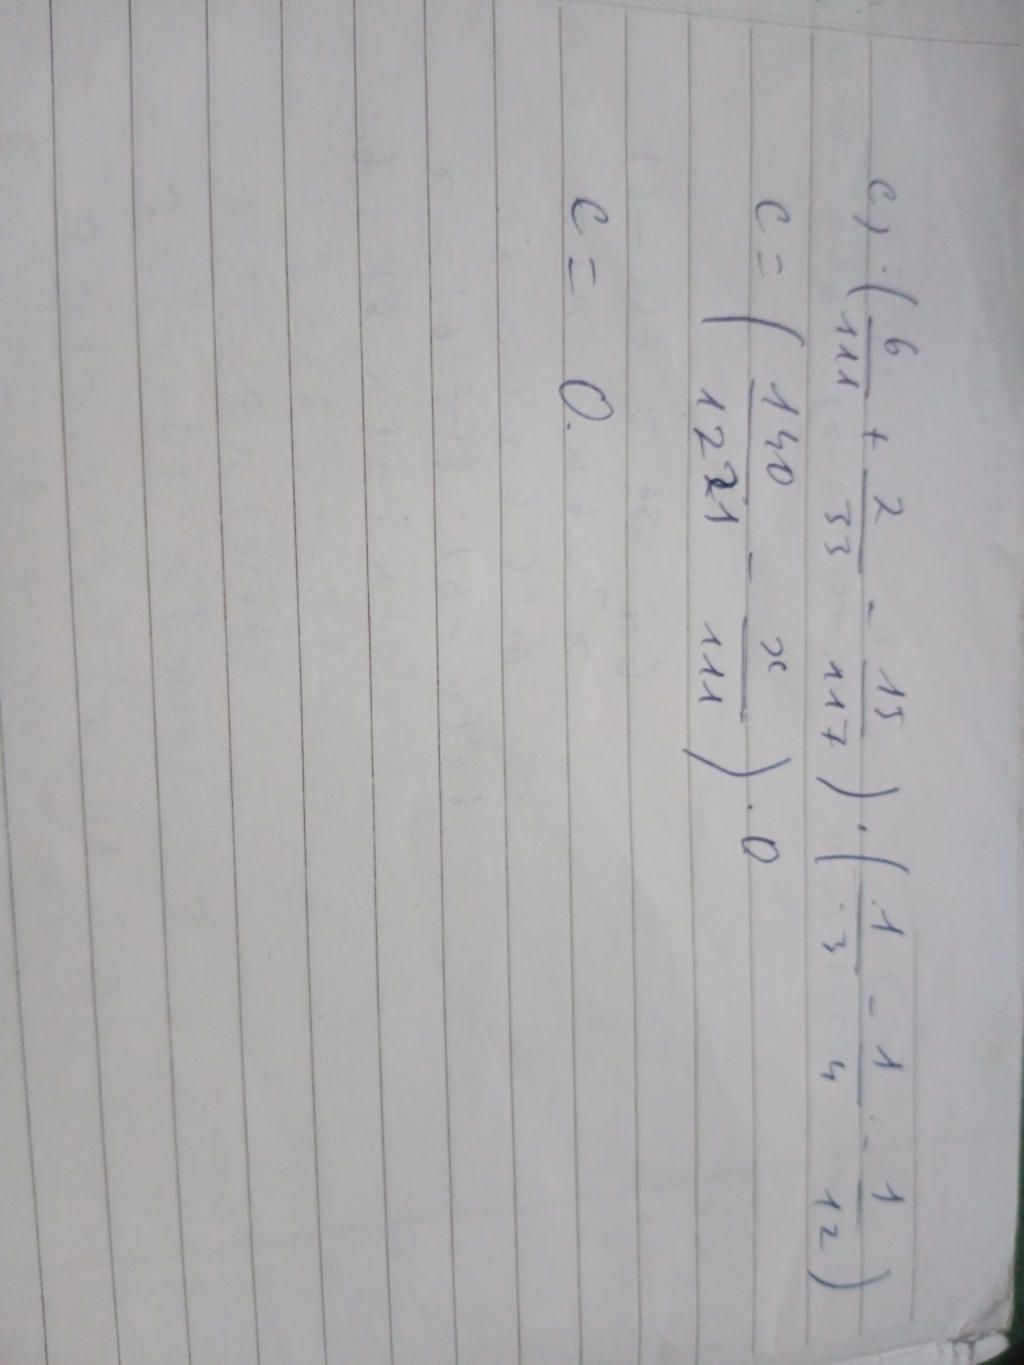 c) (6/111 + 2/33 - 15/117) . (1/3 - 1/4 - 1/12)
C = (140/1221 - x/111) . 0
C = 0.